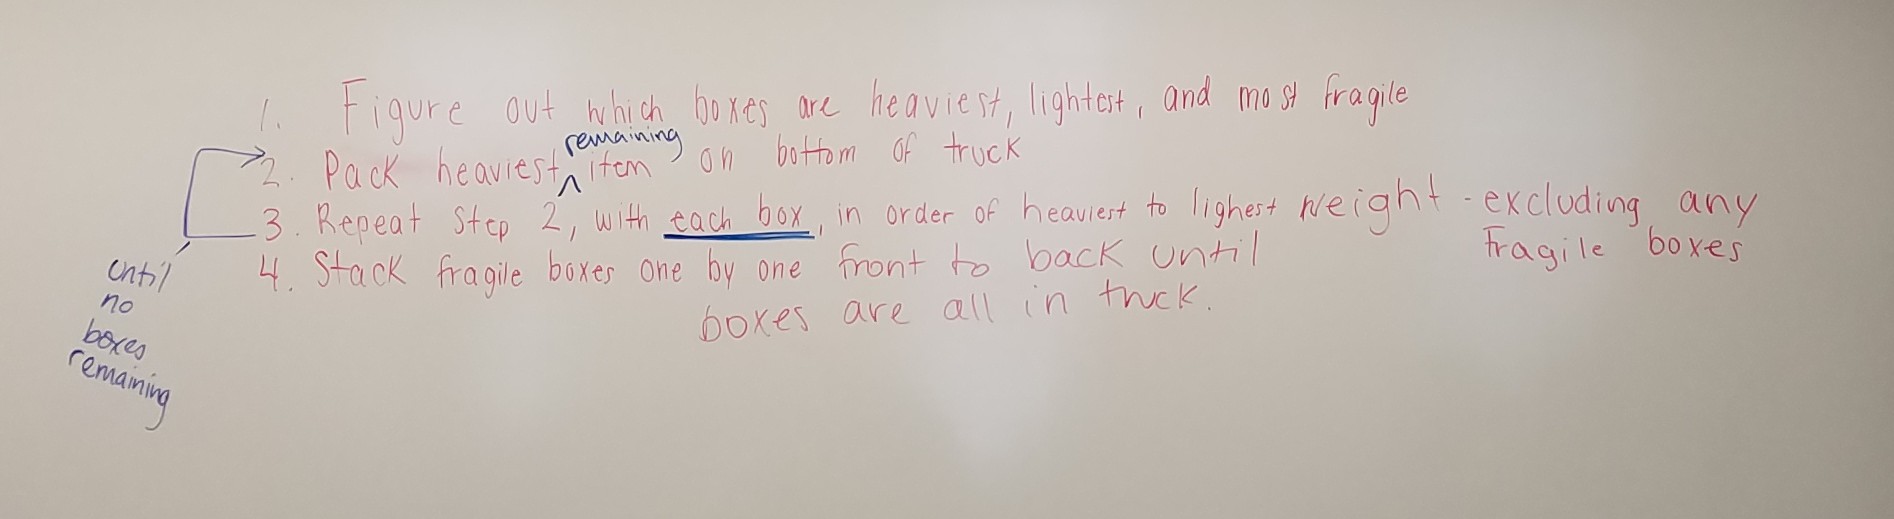 1. Figure out which boxes are heaviest, lightest, and most fragile
remaining
2. Pack heaviest ^ item on bottom of truck
3. Repeat Step 2, with each box, in order of heaviest to lighest weight - excluding any
fragile boxes
4. Stack fragile boxes one by one front to back until
boxes are all in truck.
until
no
boxes
remaining